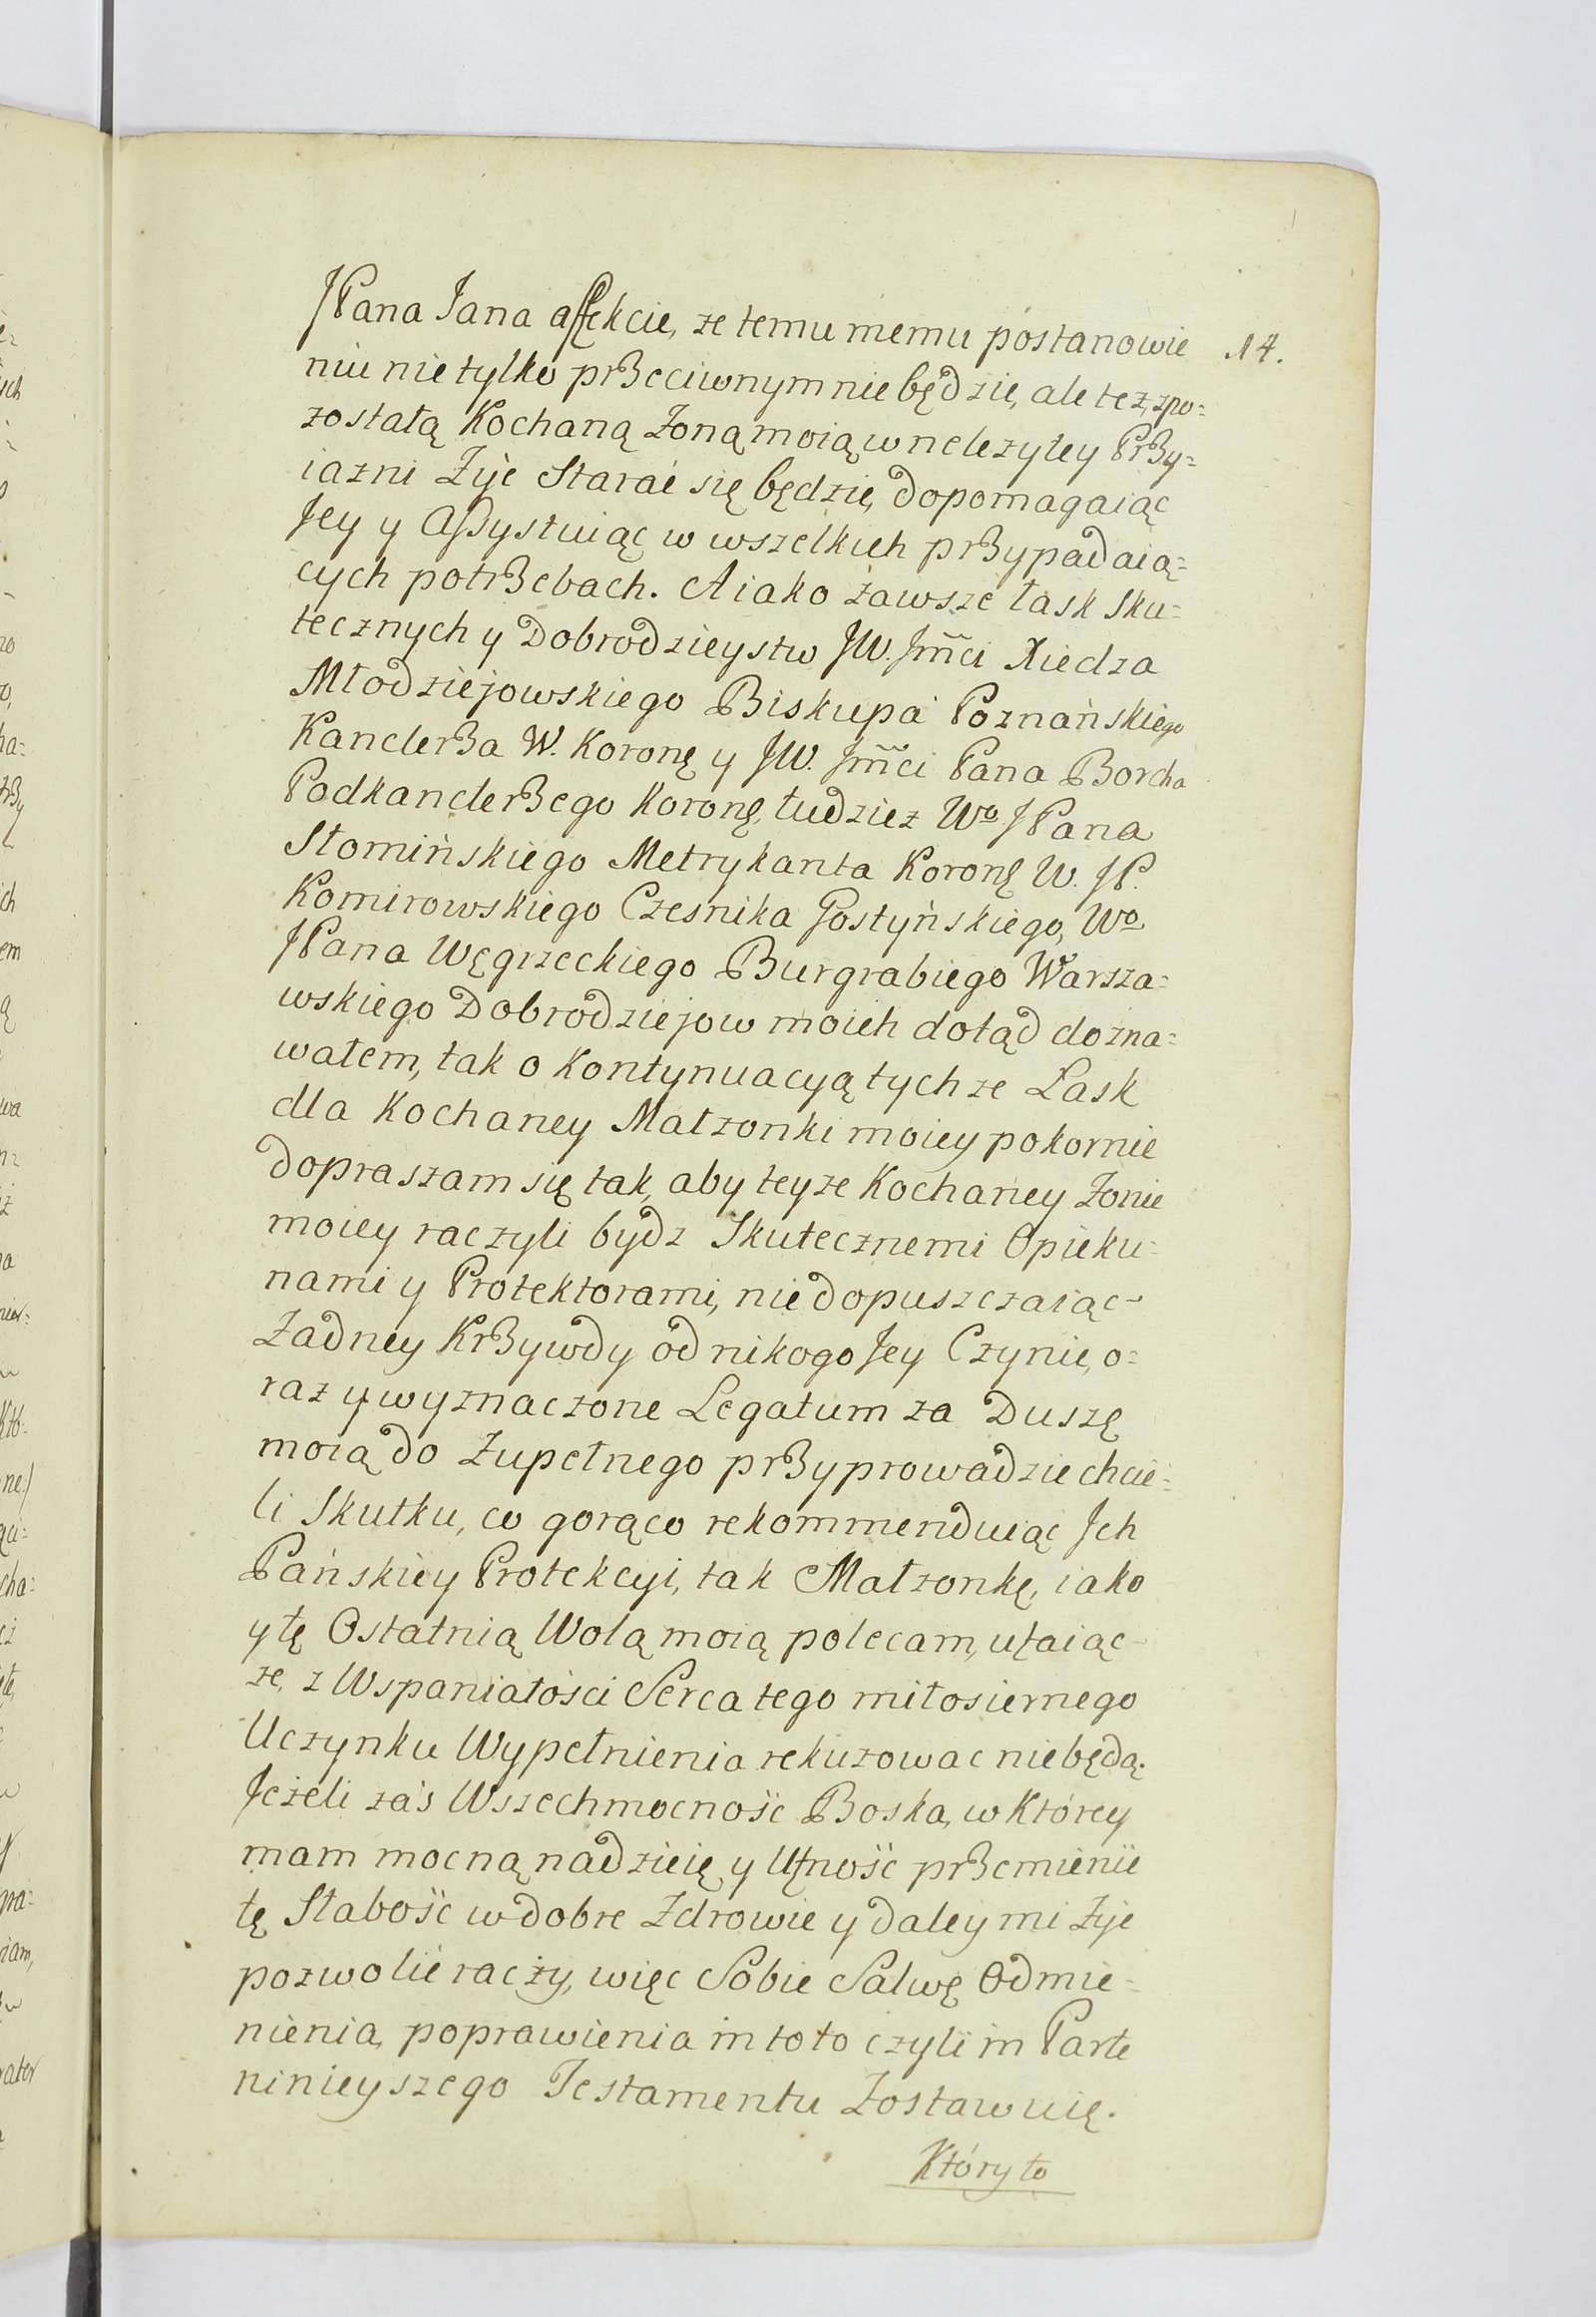 JPana Jana affekcie, ze temu memu postanowie 14.
niu nie tylko przeciwnym nie będzie, ale tez, z po=
zostałą Kochaną Zoną moią w nelezytey Przy=
iazni Zyć Starać się będzie, dopomagaiąc
Jey y Assystuiąc w wszelkich przypadaią=
cych potrzebach. A iako zawsze łask sku=
tecznych y Dobrodzieystw JW. Jm̃ci Xiedza
Młodziejowskiego Biskupa Poznańskiego
Kanclerza W. Koronę y JW. Jm̃ci Pana Borcha
Podkanclerzego Koronę, tudziez Wo JPana
Słomińskiego Metrykanta Koronę W. JP.
Komirowskiego Czesnika Gostyńskiego, Wo
JPana Węgrzeckiego Burgrabiego Warsza=
wskiego Dobrodziejow moich dotąd dozna=
wałem, tak o Kontynuacyą tychze Łask
dla Kochaney Małzonki moiey pokornie
dopraszam się tak, aby teyze Kochaney Zonie
moiey raczyli bydz Skutecznemi Opieku=
nami y Protektorami, nie dopuszczaiąc
Zadney Krzywdy od nikogo Jey Czynić, o=
raz y wyznaczone Legatum za Duszę
moią do Zupełnego przyprowadzić chcie=
li Skutku, co gorąco rekommenduiąc Jch
Pańskiey Protekcyi, tak Małzonkę, iako
y tę Ostatnią Wolą moią polecam, ufaiąc
ze, z Wspaniałości Serca tego miłosiernego
Uczynku Wypełnienia rekuzowac nie będą.
Jeżeli zaś Wszechmocność Boska, w Którey
mam mocną nadzieię y Ufność przemienić
tę Słabość w dobre Zdrowie y daley mi Zyć
pozwolić raczy, więc Sobie Salwę Odmie=
nienia, poprawienia in toto czyli in Parte
ninieyszego Testamentu Zostawuię.
Który to